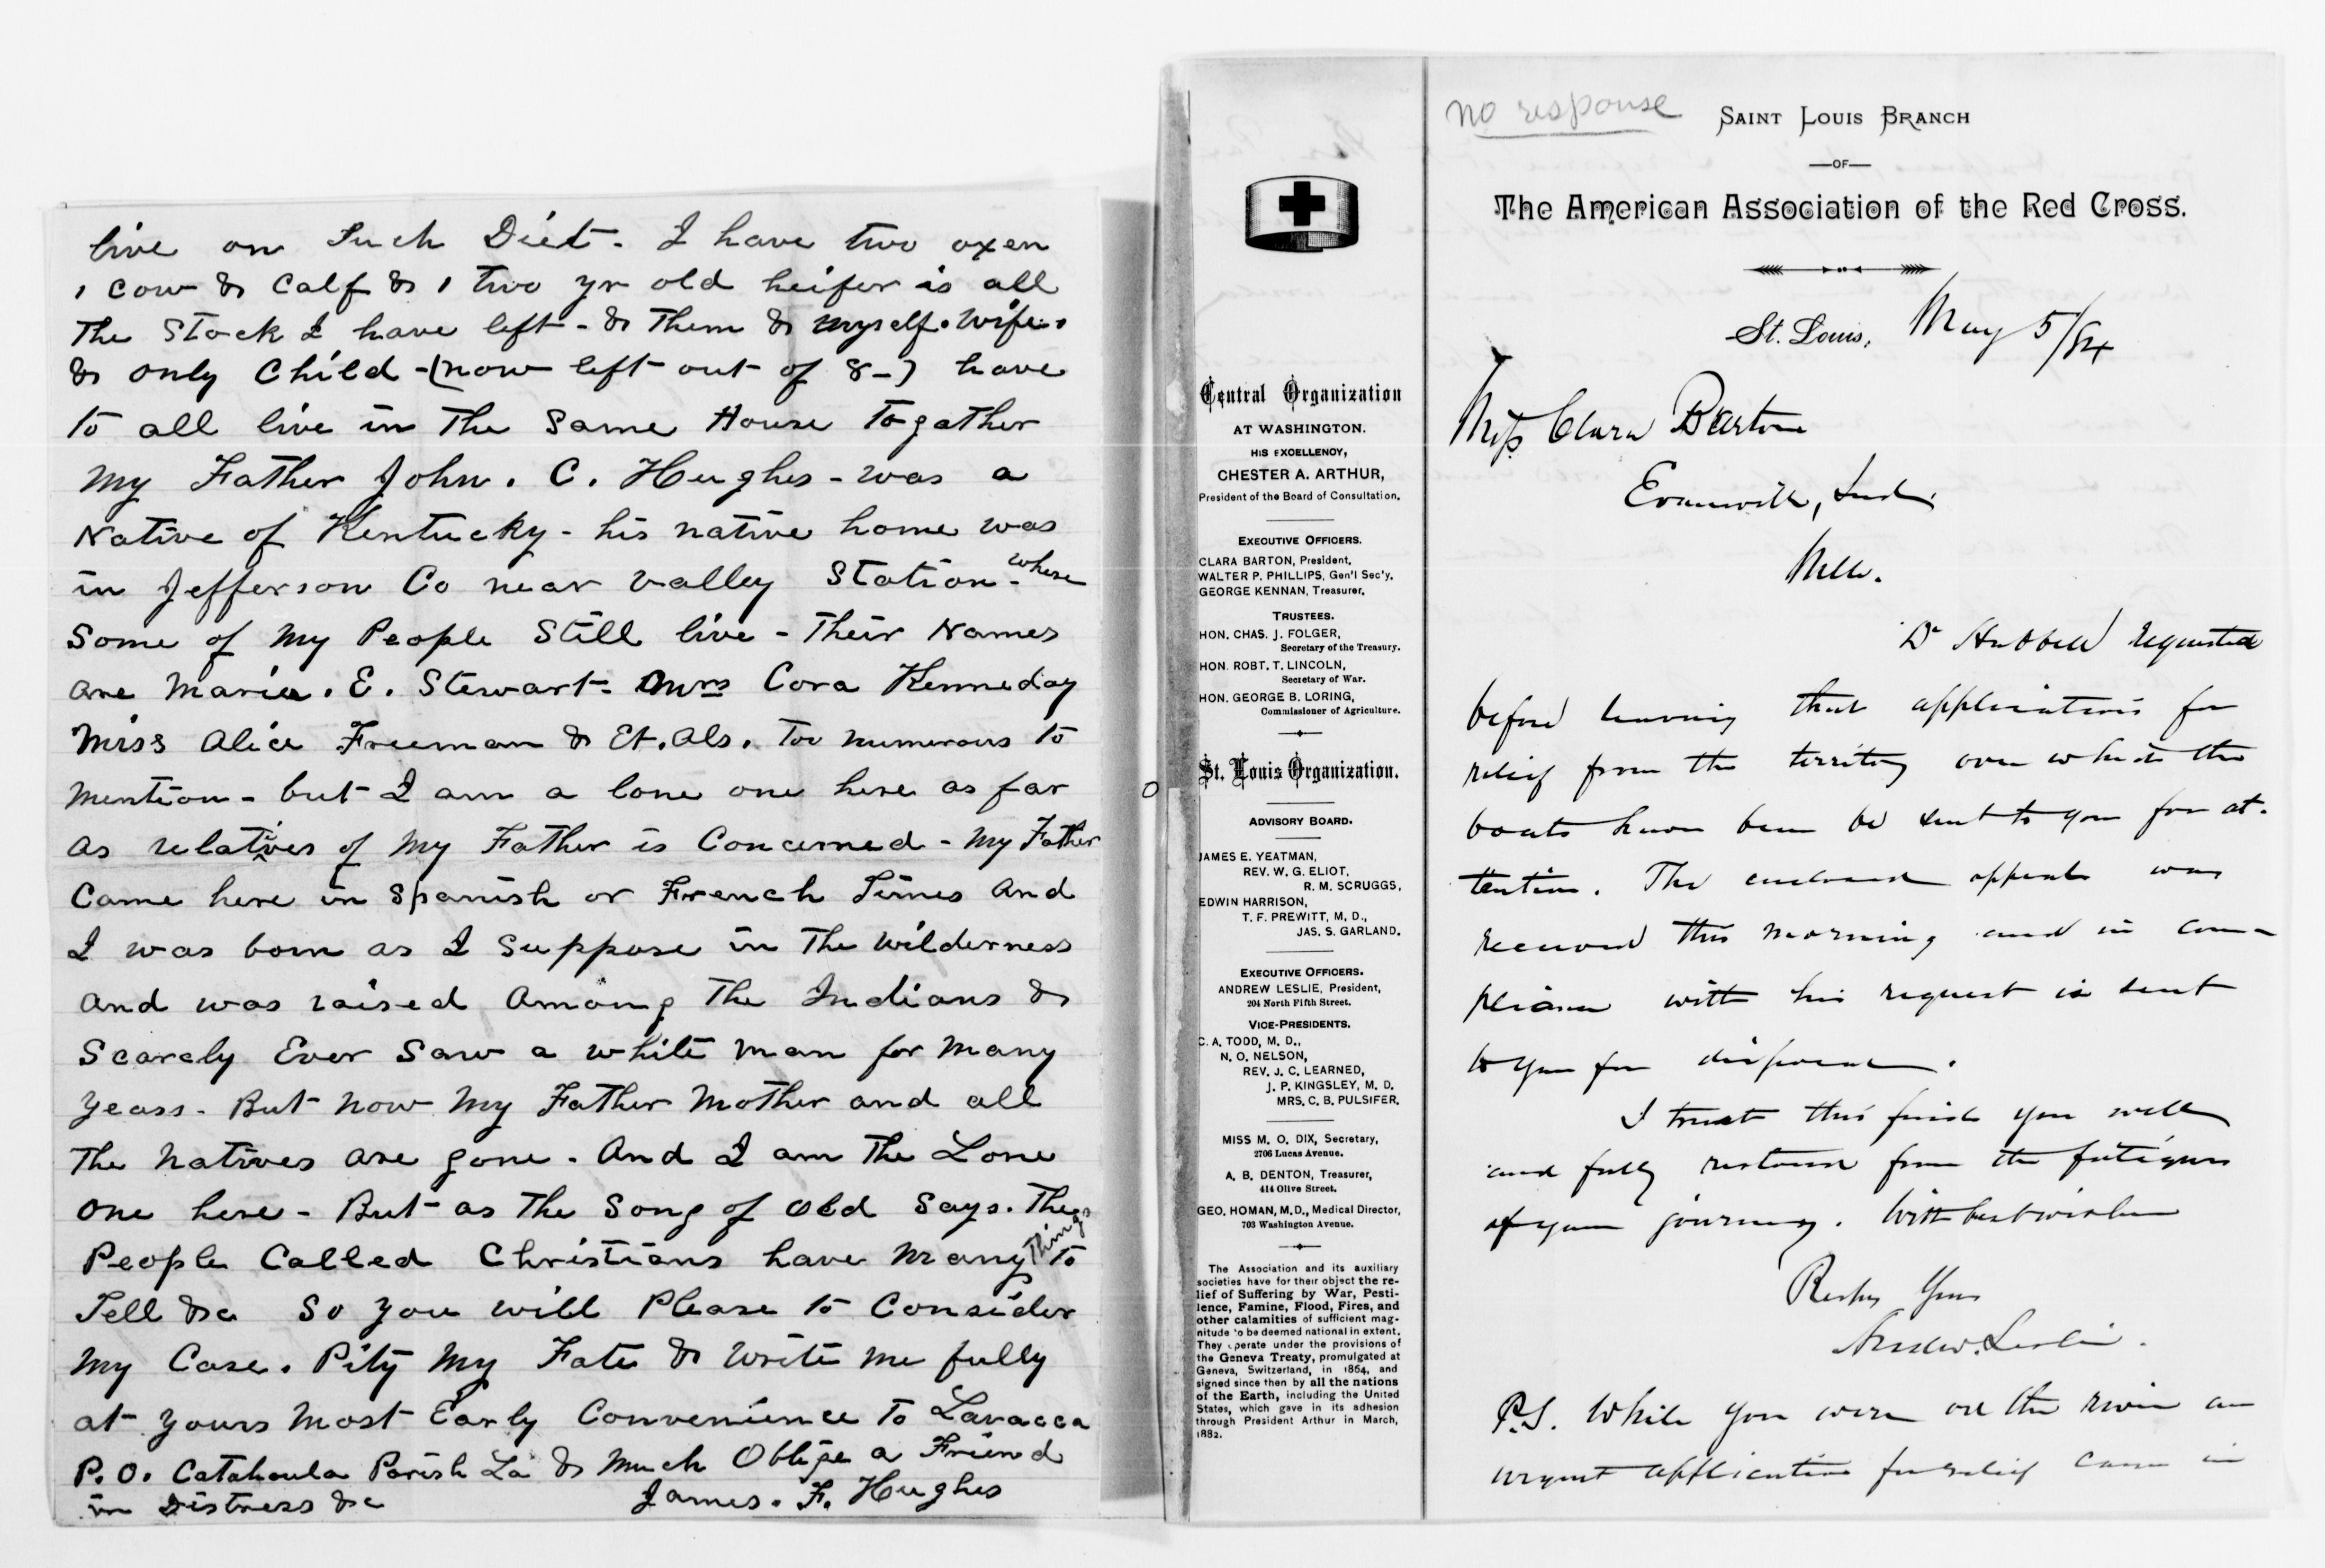 live on Such Diet. I have two oxen
1 Cow & Calf & 1 two yr old heifer is all
The Stock I have left - & Them & Myself. Wife.
& only Child - (now left out of 8-) have
to all live in The Same House Togather
My Father John. C. Hughes - was a
Native of Kentucky - his native home was
in Jefferson Co near Valley Station - where
Some of My People Still live - Their Names
are Maria. E. Stewart - Mrs Cora Kenneday
Miss Alice Freeman & Et. Als. Too numerous to
Mention - but I am a lone one here as far
as relatives of My Father is Concerned - My Father
Came here in Spanish or French Times And
I was born as I Suppose in The Wilderness
And was raised Among The Indians &
Scarcly Ever Saw a white man for Many
Years - But now My Father Mother and all
The Natives are gone - And I am The Lone
one here - But as The Song of Old Says. These
People Called Christians have Many Things To
Tell &c So you will Please to Consider
My Case. Pity My Fate & Write me fully
at yours Most Early Convenience To Lavacca
P.O. Catahoula Parish La & Much Oblige a Friend
in Distress &c James. F. Hughes
no response
SAINT LOUIS BRANCH
—OF—
The American Association of the Red Cross.
St. Louis, May 5/84
Miss Clara Barton
Evansville, Ind.
Dr Hubbell requested
before leaving that applications for
relief from the territory over which the
boats have been be sent to you for at-
tention. The enclosed appeal was
received this morning and in com-
pliance with his request is sent
to you for disposal.
I trust this finds you well
and fully restored from the fatigues
of your journey. With best wishes
Respy Yours
Andrew Leslie.
P.S. While you were on the river an
urgent application for relief came in
Central Organization
AT WASHINGTON.
HIS EXCELLENCY,
CHESTER A. ARTHUR,
President of the Board of Consultation.
EXECUTIVE OFFICERS.
CLARA BARTON, President,
WALTER P. PHILLIPS, Gen'l Sec'y,
GEORGE KENNAN, Treasurer.
TRUSTEES.
HON. CHAS. J. FOLGER,
Secretary of the Treasury.
HON. ROBT. T. LINCOLN,
Secretary of War.
HON. GEORGE B. LORING,
Commissioner of Agriculture.
St. Louis Organization.
ADVISORY BOARD.
JAMES E. YEATMAN,
REV. W. G. ELIOT,
R. M. SCRUGGS,
EDWIN HARRISON,
T. F. PREWITT, M. D.,
JAS. S. GARLAND.
EXECUTIVE OFFICERS.
ANDREW LESLIE, President,
204 North Fifth Street.
VICE-PRESIDENTS.
C. A. TODD, M. D.,
N. O. NELSON,
REV. J. C. LEARNED,
J. P. KINGSLEY, M. D.
MRS. C. B. PULSIFER.
MISS M. O. DIX, Secretary,
2706 Lucas Avenue.
A. B. DENTON, Treasurer,
414 Olive Street.
GEO. HOMAN, M.D., Medical Director,
703 Washington Avenue.
The Association and its auxiliary
societies have for their object the re-
lief of Suffering by War, Pesti-
lence, Famine, Flood, Fires, and
other calamities of sufficient mag-
nitude to be deemed national in extent.
They operate under the provisions of
the Geneva Treaty, promulgated at
Geneva, Switzerland, in 1864, and
signed since then by all the nations
of the Earth, including the United
States, which gave in its adhesion
through President Arthur in March,
1882.